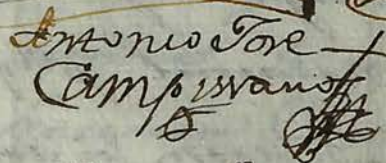 Antonio Jose
Campissano